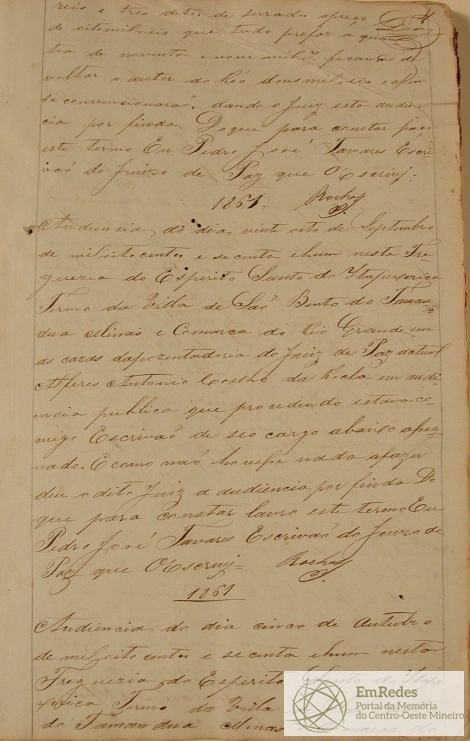 reis e tres ditos de serrados apreço
de oito mil reis que tudo prefaz a quan
tia de noventa e nove mil rs ficando
voltar o autor do Réo dous mil reis
se convencionarão, dando o Juiz esta audien
cia por finda. Do que para constar faço
este termo Eu Pedro José Tavares Escri
vaõ do Juizo de Paz que O'Escrivj:
1861. Rocha
Audiencia do dia vinte oito de Septembro
de mil oito centos e secenta ehum nesta Fre
guezia do Espirito Santo do Itapecerica
Termo da Villa de Saõ Bento do Taman
dua Minas e Comarca do Rio Grande em
as cazas daposentadoria do Juiz de Paz actual
Alferes Antonio Coelho da Rocha em audi
encia publica que procedendo estava co
migo Escrivaõ de seo cargo abaixo asig
nado. E como naõ houvesse nada afazer
deu o dito Juiz a audiencia por finda Do
que para constar lavro este termo Eu
Pedro José Tavares Escrivaõ do Juizo de
Paz que O'Escrivj= Rocha
1861
Audiencia do dia cinco de Outubro
de mil oito centos e secenta ehum nesta
Freguezia do Espirito Santo do Itape
Termo da Villa
do Tamandua Minas
EmRedes
Portal da Memória
do Centro-Oeste Mineiro